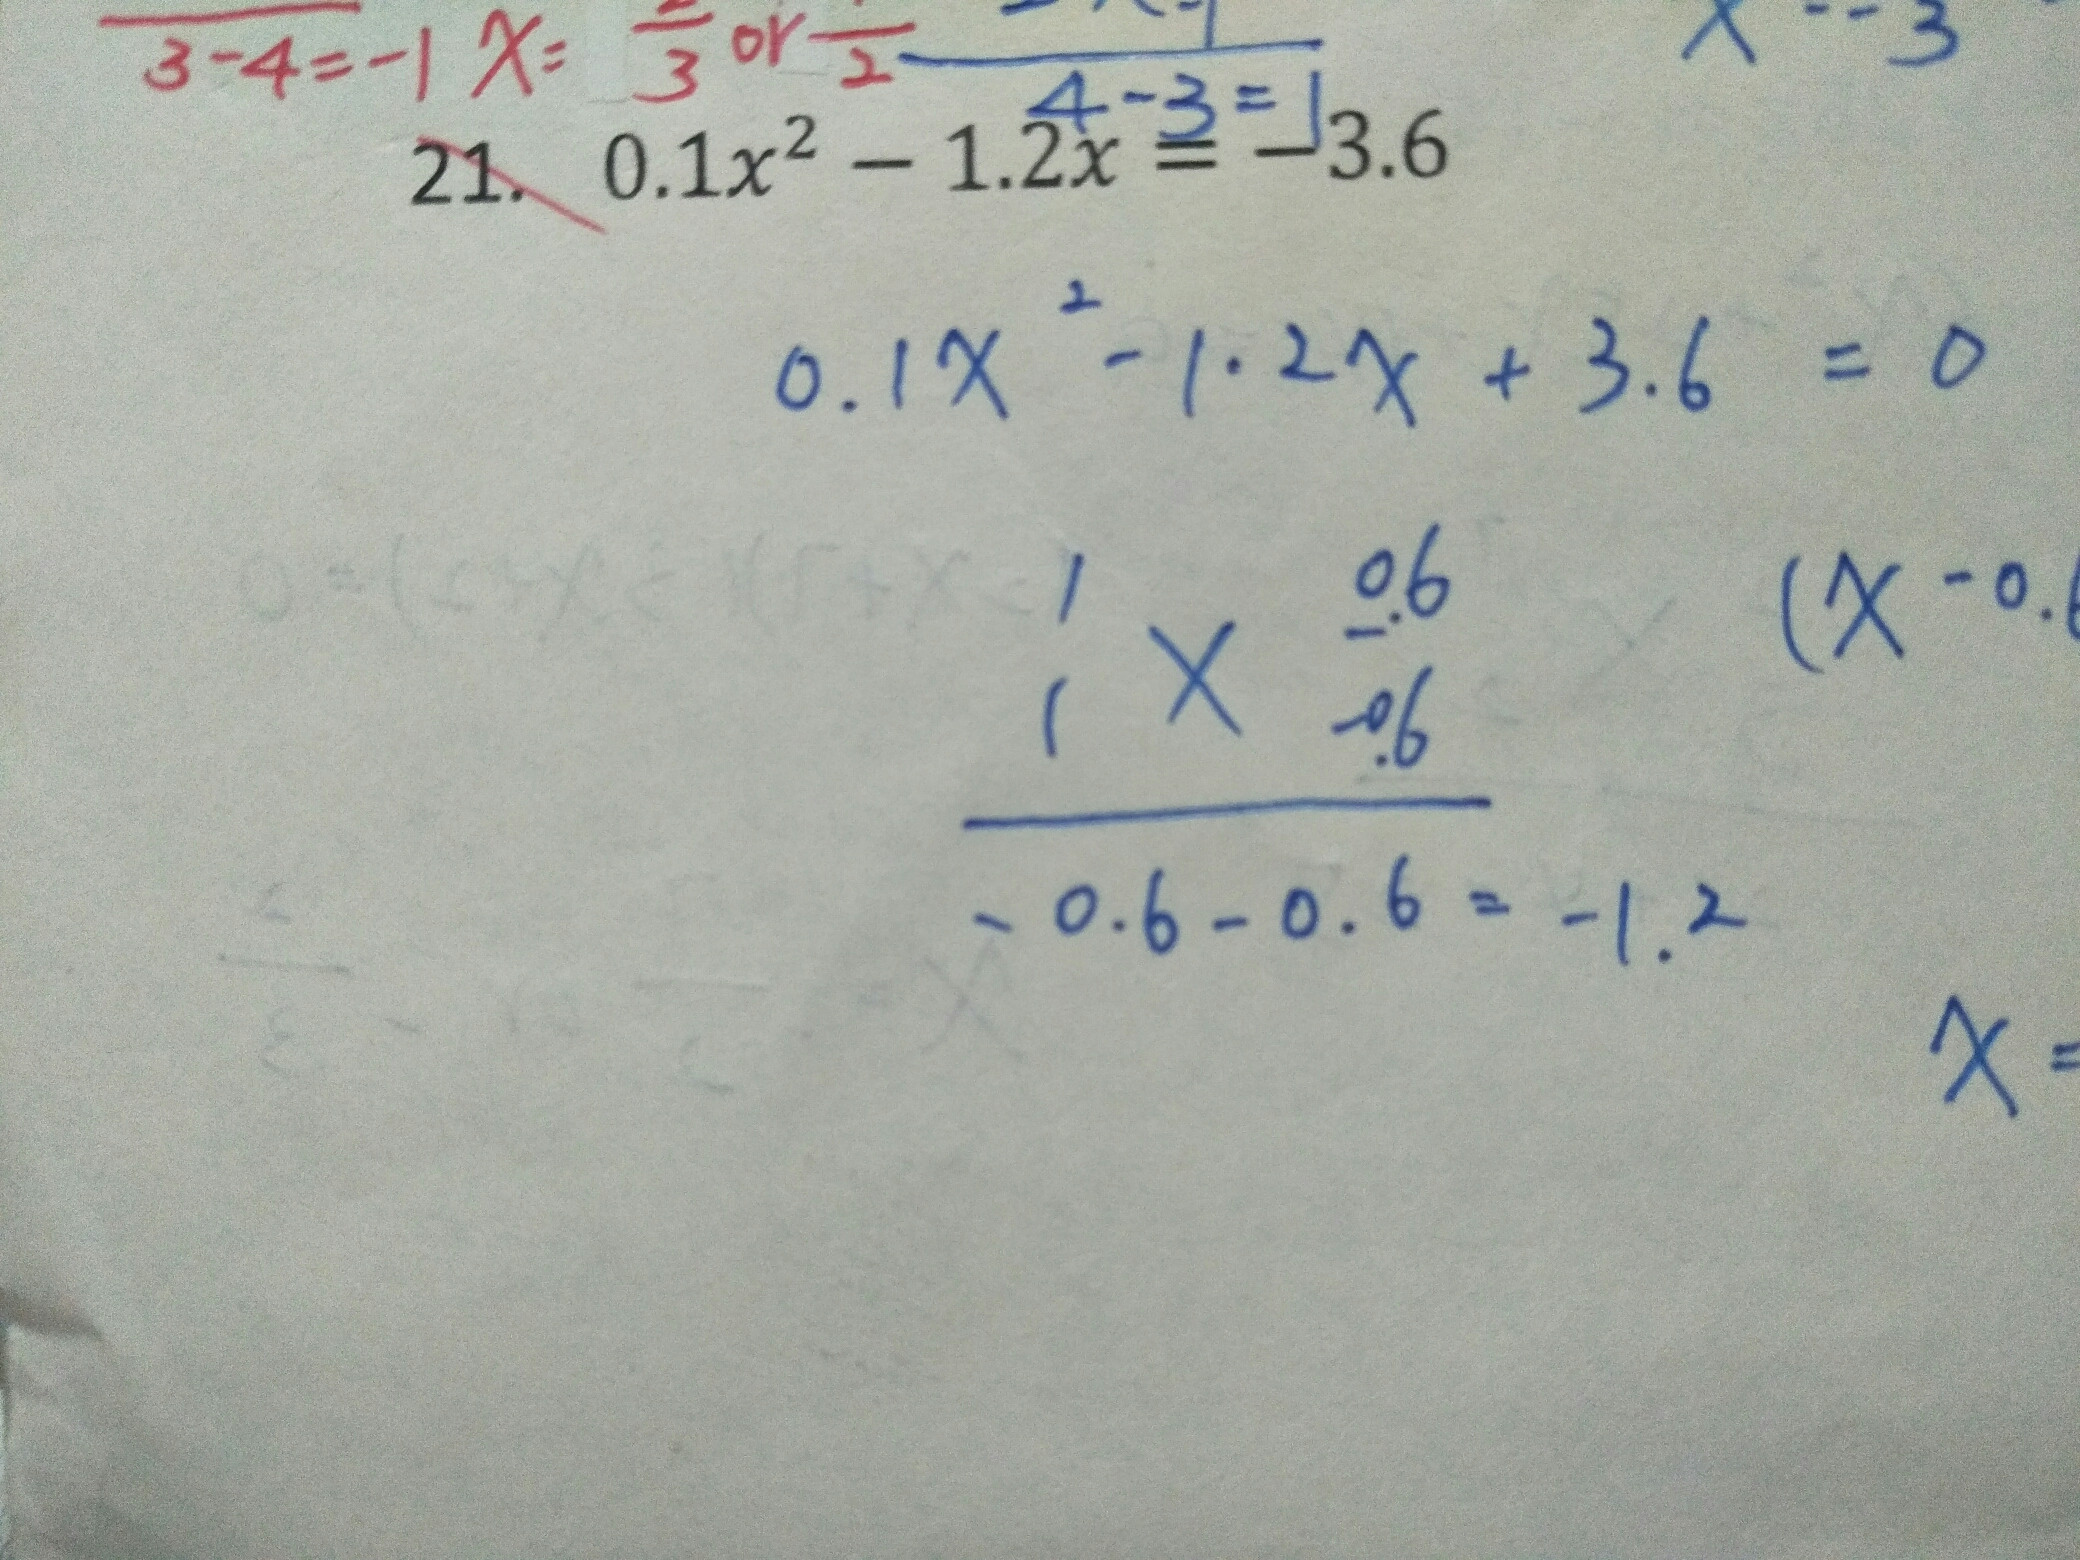 3-4=-1 X= 3 or 2
4-3=1
X=-3
21. 0.1x² − 1.2x = −3.6
0.1X² - 1.2X + 3.6 = 0
1 X -0.6
1 -0.6
(X-0.6
-0.6-0.6=-1.2
X=